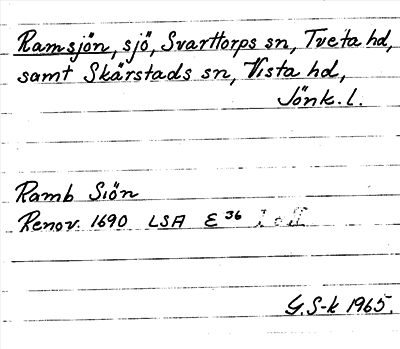 Ramsjön, sjö, Svarttorps sn, Tveta hd,
samt Skärstads sn, Vista hd,
Jönk. l.
Ramb Siön
Renov. 1690 LSA E 36
G. S-k 1965.